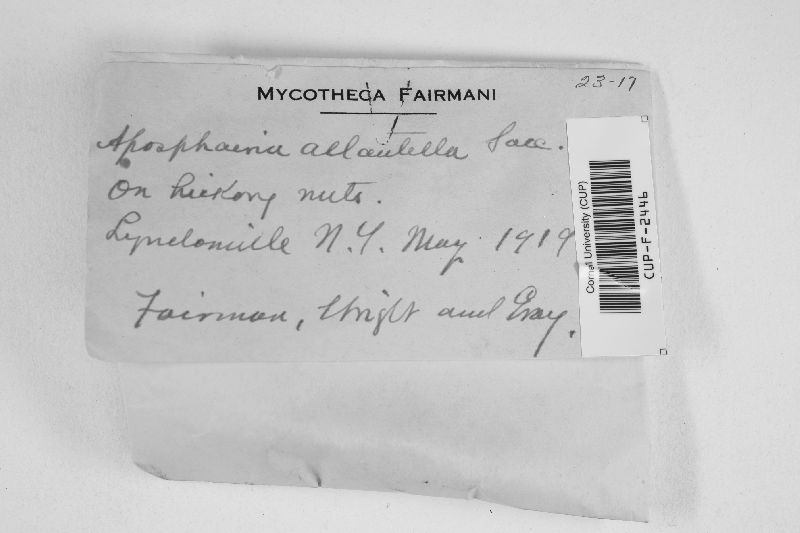 23-17
MYCOTHECA FAIRMANI
Aposphaeria allantella Sacc.
On hickory nuts.
Lyndonville N.Y. May 1919
Fairman, Wright and Gray.
Cornell University (CUP)
CUP-F-2446